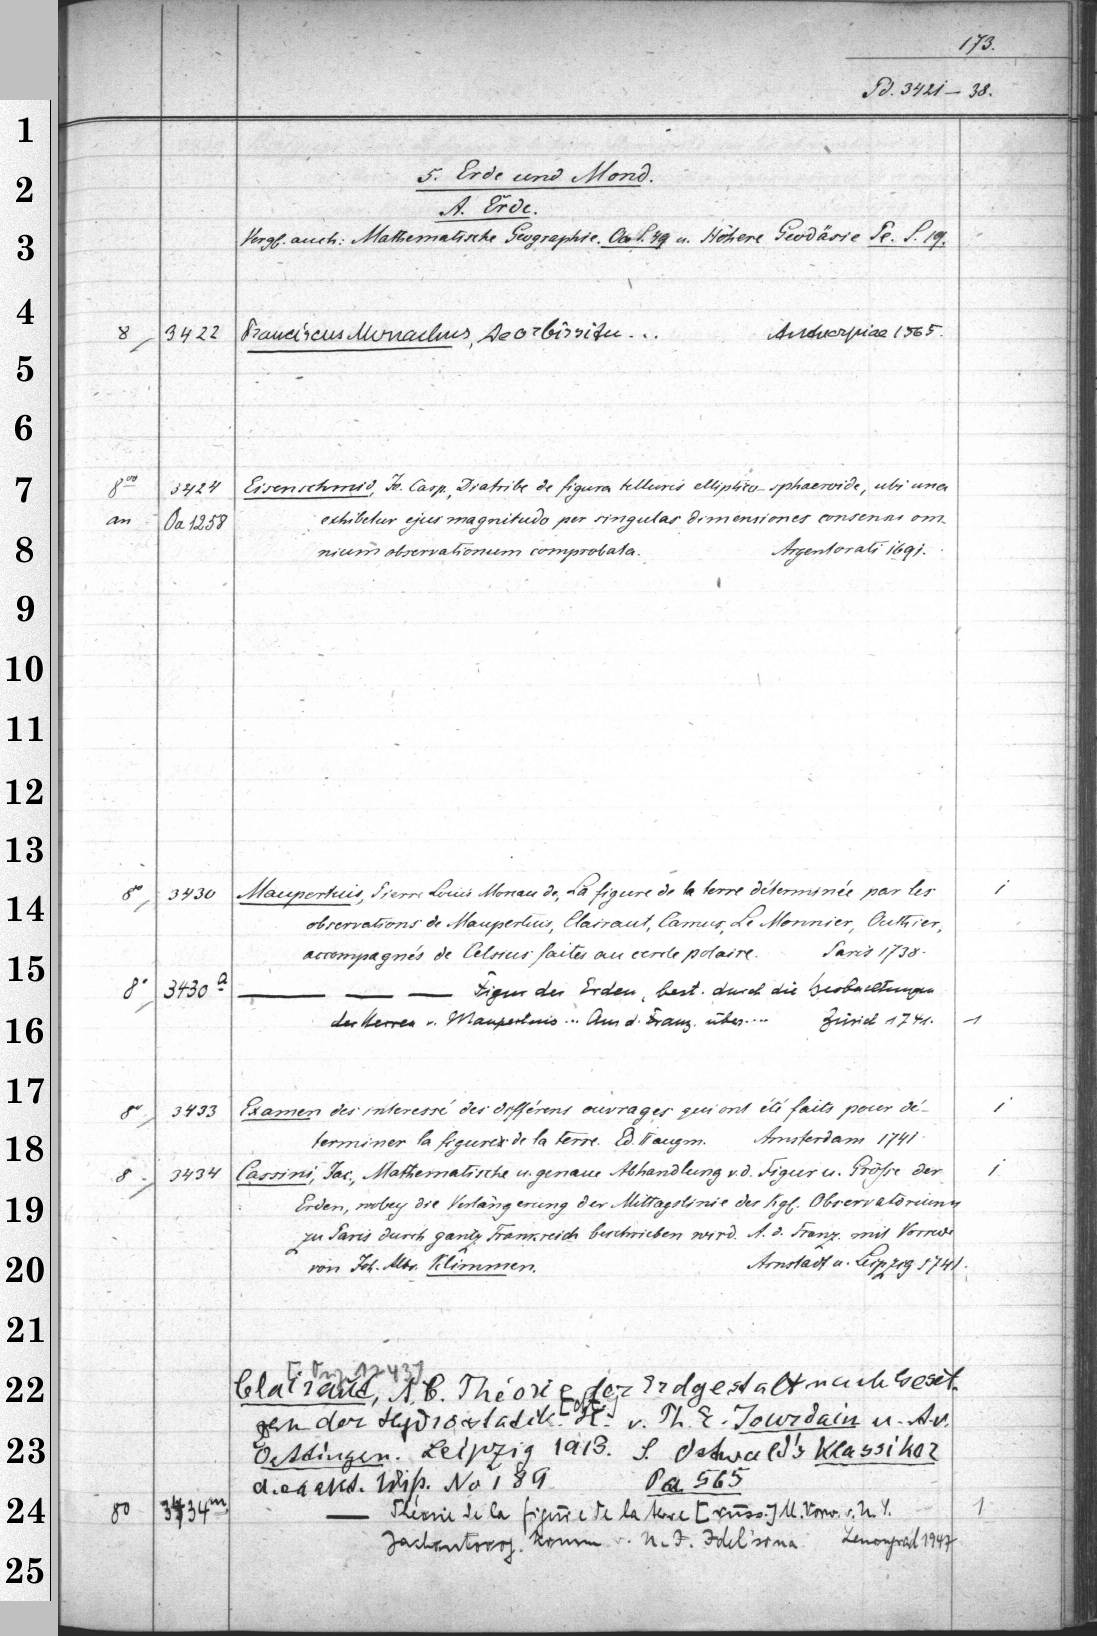 173.
Pd. 3421 - 38.
5. Erde und Mond.
A. Erde.
Vergl. auch: Mathematische Geographie. Oa S. 49 u. Höhere Geodäsie Pe. S. 19.
8 3422 Franciscus Monachus, De orbis situ ... Antwerpiae 1565.
8vo 3424 Eisenschmid, Jo. Casp., Diatribe de figura telluris elliptico-sphaeroide, ubi una
an Oa 1258 exhibetur ejus magnitudo per singulas dimensiones consensu om-
nium observationum comprobata. Argentorati 1691.
8° 3430 Maupertuis, Pierre Louis Moreau de, La figure de la terre déterminée par les 1
observations de Maupertuis, Clairaut, Camus, Le Monnier, Outhier,
accompagnés de Celsius faites au cercle polaire. Paris 1738.
8° 3430a — — — Figur der Erden, best. durch die Beobachtungen
der Herren v. Maupertuis ... Aus d. Franz. übers.... Zürich 1741. 1
8° 3433 Examen des interessé des différens ouvrages qui ont été faits pour dé- 1
terminer la figure de la terre. Ed. II augm. Amsterdam 1741.
8 3434 Cassini, Jac., Mathematische u. genaue Abhandlung v. d. Figur u. Größe der 1
Erden, wobey die Verlängerung der Mittagslinie des Kgl. Observatoriums
zu Paris durch gantz Frankreich beschrieben wird. A. d. Franz. mit Vorrede
von Joh. Albr. Klimmen. Arnstadt u. Leipzig 1741.
1743]
Clairaut, A. C. Théorie der Erdgestalt nach Geset-
zen der Hydrostatik. v. Ph. E. Jourdain u. A. v.
Oettingen. Leipzig 1913. S. Ostwald's Klassiker
d. exakt. Wiss. No 189 Pa 565
80 3434m — Théorie de la figure de la terre [russ.] M. 1
Komm. v. N. I. Idel'sona Leningrad 1947
1
2
3
4
5
6
7
8
9
10
11
12
13
14
15
16
17
18
19
20
21
22
23
24
25